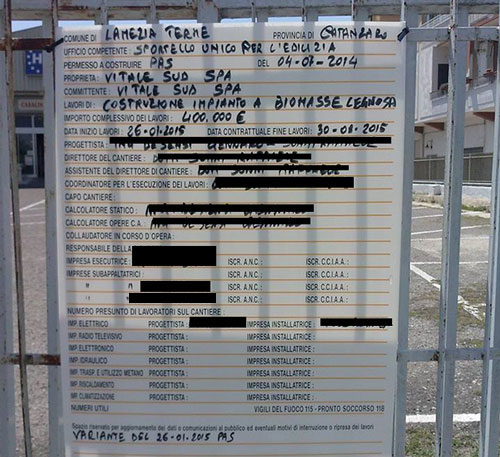 COMUNE DI LAMEZIA TERME PROVINCIA DI CATANZARO
UFFICIO COMPETENTE: SPORTELLO UNICO PER L'EDILIZIA
PERMESSO A COSTRUIRE PAS DEL 04-07-2014
PROPRIETA: VITALE SUD SPA
COMMITTENTE: VITALE SUD SPA
LAVORI DI: COSTRUZIONE IMPIANTO A BIOMASSE LEGNOSA
IMPORTO COMPLESSIVO DEI LAVORI: 400.000 €
DATA INIZIO LAVORI: 26-01-2015 DATA CONTRATTUALE FINE LAVORI: 30-08-2015
PROGETTISTA:
DIRETTORE DEL CANTIERE:
ASSISTENTE DEL DIRETTORE DI CANTIERE:
COORDINATORE PER L'ESECUZIONE DEI LAVORI:
CAPO CANTIERE:
CALCOLATORE STATICO:
CALCOLATORE OPERE C.A.:
COLLAUDATORE IN CORSO D'OPERA:
RESPONSABILE DELLA
IMPRESA ESECUTRICE: ISCR. A.N.C.: ISCR. C.C.I.A.A.:
IMPRESE SUBAPPALTATRICI: ISCR. A.N.C.: ISCR. C.C.I.A.A.:
" " ISCR. A.N.C.: ISCR. C.C.I.A.A.:
" " ISCR. A.N.C.: ISCR. C.C.I.A.A.:
NUMERO PRESUNTO DI LAVORATORI SUL CANTIERE:
IMP. ELETTRICO PROGETTISTA: IMPRESA INSTALLATRICE:
IMP. RADIO TELEVISIVO PROGETTISTA: IMPRESA INSTALLATRICE:
IMP. ELETTRONICO PROGETTISTA: IMPRESA INSTALLATRICE:
IMP. IDRAULICO PROGETTISTA: IMPRESA INSTALLATRICE:
IMP. TRASP. E UTILIZZO METANO PROGETTISTA: IMPRESA INSTALLATRICE:
IMP. RISCALDAMENTO PROGETTISTA: IMPRESA INSTALLATRICE:
IMP. CLIMATIZZAZIONE PROGETTISTA: IMPRESA INSTALLATRICE:
NUMERI UTILI VIGILI DEL FUOCO 115 - PRONTO SOCCORSO 118
Spazio riservato per aggiornamento dei dati o comunicazioni al pubblico ed eventuali motivi di interruzione o ripresa dei lavori
VARIANTE DEL 26-01-2015 PAS